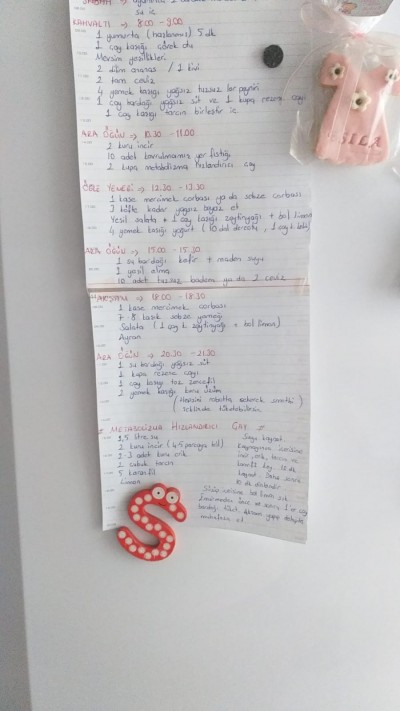 su iç
KAHVALTI → 8.00 - 9.00
1 yumurta (haşlanmış) 5 dk
2 çay kaşığı çörek otu
Mevsim yeşillikleri
2 dilim ananas / 2 kivi
2 tam ceviz
4 yemek kaşığı yağsız tuzsuz lor peyniri
1 çay bardağı yağsız süt ve 1 kupa rezene çayı
1 çay kaşığı tarçın birleştir iç
ARA ÖĞÜN → 10.30 - 11.00
2 kuru incir
10 adet kavrulmamış yer fıstığı
2 kupa metabolizma hızlandırıcı çay
ÖĞLE YEMEĞİ → 12.30 - 13.30
1 kase mercimek çorbası ya da sebze çorbası
3 köfte kadar yağsız beyaz et
Yeşil salata + 1 çay kaşığı zeytinyağı + bol limon
4 yemek kaşığı yoğurt (10 dal dereotu, 1 çay k.
ARA ÖĞÜN → 15.00 - 15.30
1 su bardağı kefir + maden suyu
1 yeşil elma
10 adet tuzsuz badem ya da 3 ceviz
AKŞAM → 18.00 - 18.30
1 kase mercimek çorbası
7-8 kaşık sebze yemeği
Salata (1 çay k. zeytinyağı + bol limon)
Ayran
ARA ÖĞÜN → 20.30 - 21.30
1 su bardağı yağsız süt
1 kupa rezene çayı
1 çay kaşığı toz zencefil
2 yemek kaşığı kuru üzüm
(Hepsini robotta çekerek smoothie
şeklinde tüketebilirsin)
METABOLİZMA HIZLANDIRICI ÇAY
2,5 litre su
2 kuru incir (4-5 parçaya böl)
2-3 adet kuru erik
2 çubuk tarçın
5 karanfil
Limon
Suyu kaynat.
Kaynayan suyun içerisine
incir, erik, tarçın ve
karanfil koy. 12 dk
kaynat. Daha sonra
10 dk dinlendir.